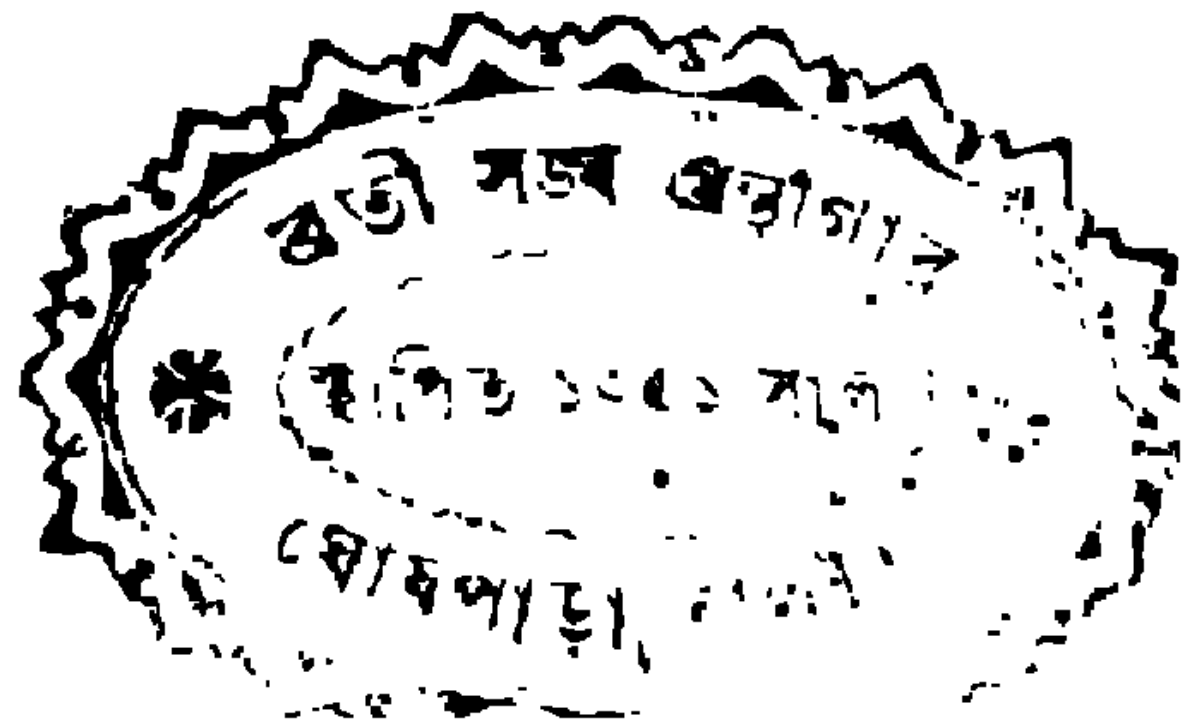 ব্রতী সঙ্ঘ গ্রন্থাগার
স্থাপিত সাল
ঘোষপাড়া,